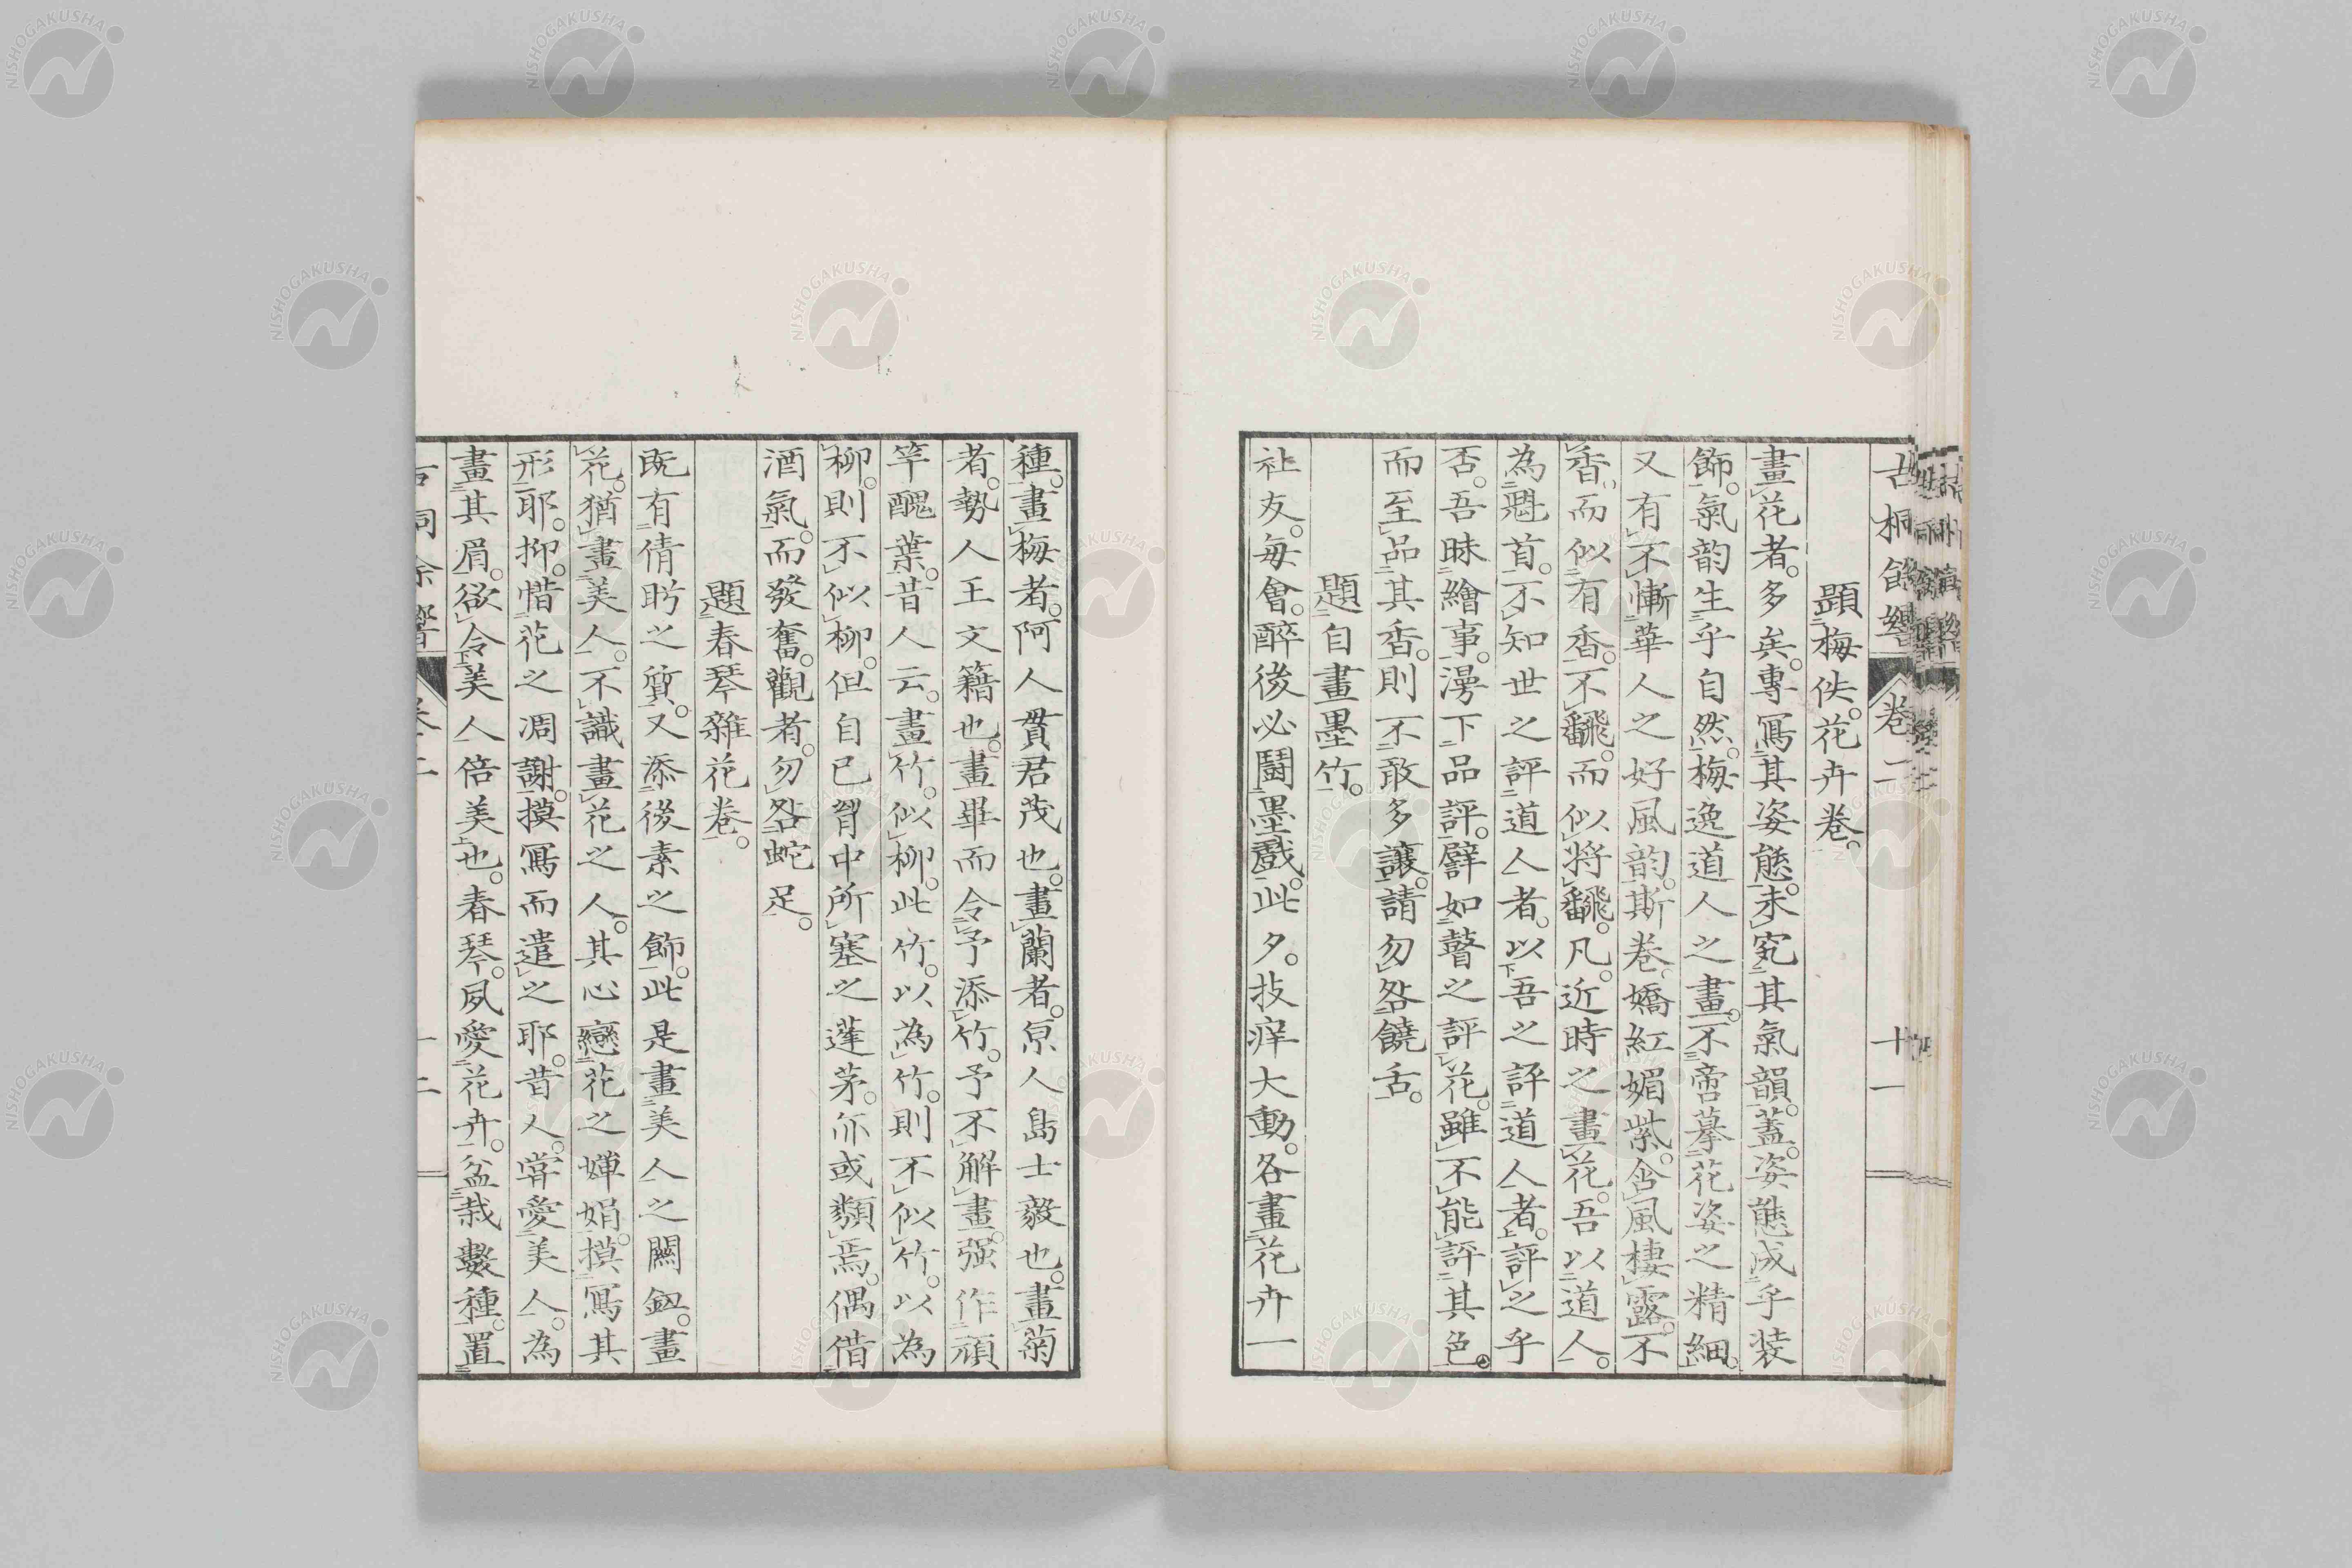 古桐餘響 卷二 十一
題梅佚花卉卷。
畫花者。多矣。專寫其姿態。未究其氣韻。蓋。姿態成乎裝
飾。氣韵生乎自然。梅逸道人之畫。不啻摹花姿之精細。
又有不慚華人之好風韵。斯卷。嬌紅媚紫。含風棲露。不
香而似有香。不飜。而似將飜。凡。近時之畫花。吾以道人。
為魁首。不知世之評道人者。以吾之評道人者。評之乎
否。吾昧繪事。漫下品評。譬如瞽之評花。雖不能評其色。
而至品其香。則不敢多讓。請勿咎饒舌。
題自畫墨竹。
社友。每會。醉後必鬪墨戲。此夕。技痒大動。各畫花卉一
種。畫梅者。阿人貫君茂也。畫蘭者。原人島士毅也。畫菊
者。勢人王文籍也。畫畢而令予添竹。予不解畫。强作頑
竿醜葉。昔人云。畫竹。似柳。此竹。以為竹。則不似竹。以為
柳。則不似柳。但自己胷中所塞之蓬茅。亦或類焉。偶借
酒氣。而發奮。觀者。勿咎蛇足。
題春琴雜花卷。
既有倩盻之質。又添後素之飾。此是畫美人之關鈕。畫
花。猶畫美人。不識畫花之人。其心戀花之嬋娟。摸寫其
形耶。抑。惜花之凋謝。摸寫而遣之耶。昔人。嘗愛美人。為
畫其眉。欲令美人倍美也。春琴。夙愛花卉。盆栽數種。置
卷二 十二
NISHOGAKUSHA